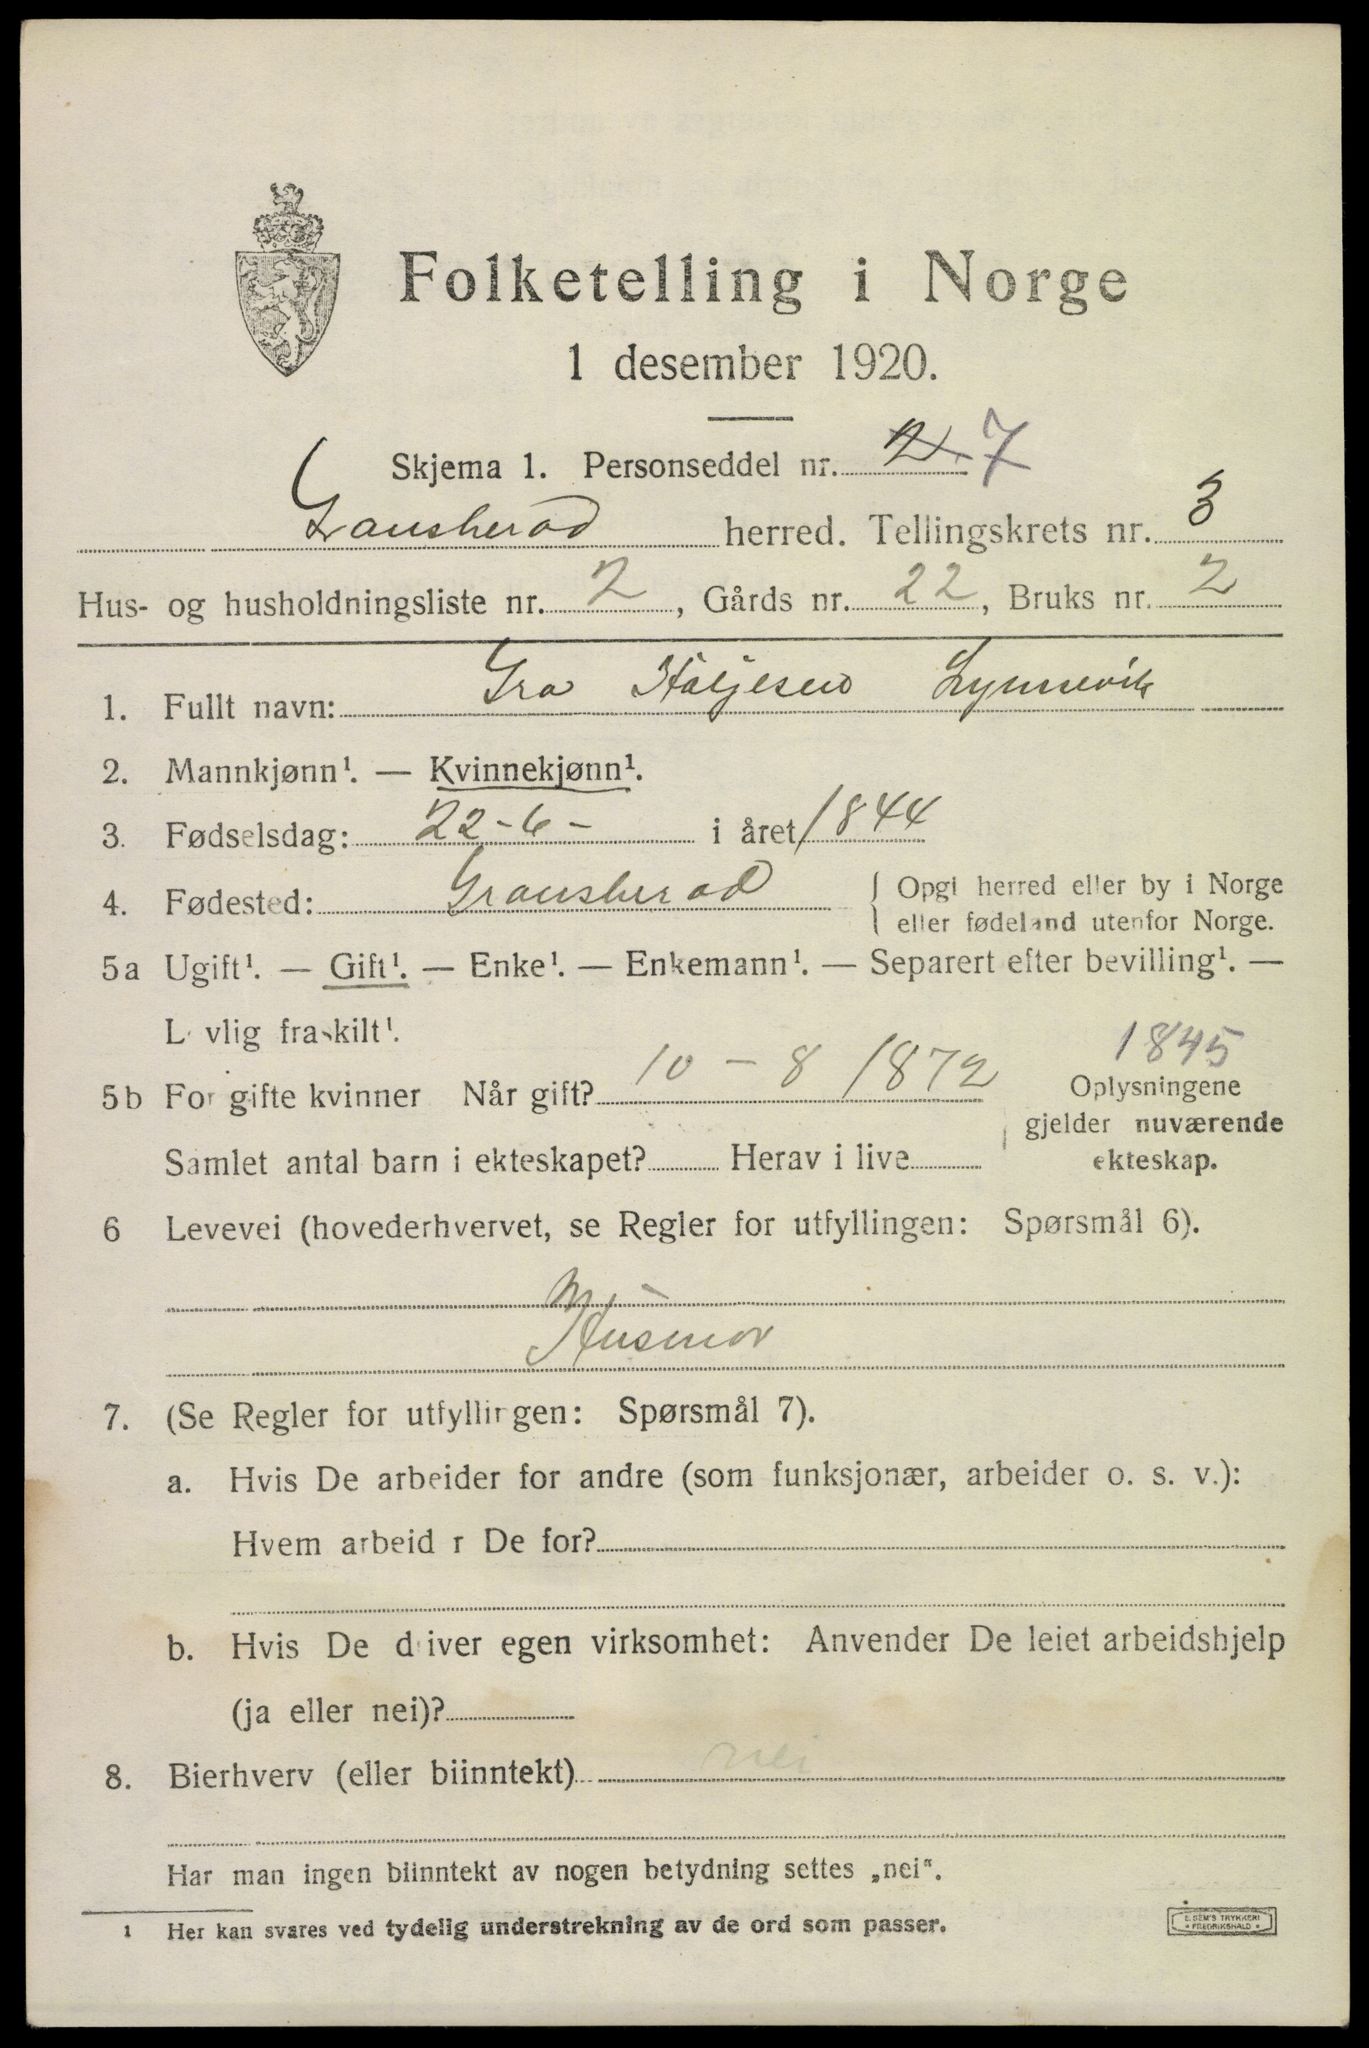 Folketelling i Norge
1 desember 1920.
Skjema 1. Personseddel nr. 2. 7
Gransherad herred. Tellingskrets nr. 3
Hus- og husholdningsliste nr. 2, Gårds nr. 22, Bruks nr. 2
1. Fullt navn: Gro Høljesen Lynnevik
2. Mannkjønn¹. — Kvinnekjønn¹.
3. Fødselsdag: 22-6- i året 1844
4. Fødested: Gransherad { Opgi herred eller by i Norge
eller fødeland utenfor Norge.
5a Ugift¹. — Gift¹. — Enke¹. — Enkemann¹. — Separert efter bevilling¹. —
L vlig fraskilt¹.
1845
5b For gifte kvinner Når gift? 10 - 8 1872 Oplysningene
gjelder nuværende
Samlet antal barn i ekteskapet? Herav i live ekteskap.
6 Levevei (hovederhvervet, se Regler for utfyllingen: Spørsmål 6).
Husmor
7. (Se Regler for utfyllingen: Spørsmål 7).
a. Hvis De arbeider for andre (som funksjonær, arbeider o. s. v.):
Hvem arbeid r De for?
b. Hvis De driver egen virksomhet: Anvender De leiet arbeidshjelp
(ja eller nei)?
8. Bierhverv (eller biinntekt) nei
Har man ingen biinntekt av nogen betydning settes „nei“.
¹ Her kan svares ved tydelig understrekning av de ord som passer.
E. SEM'S TRYKKERI
FREDRIKSHALD